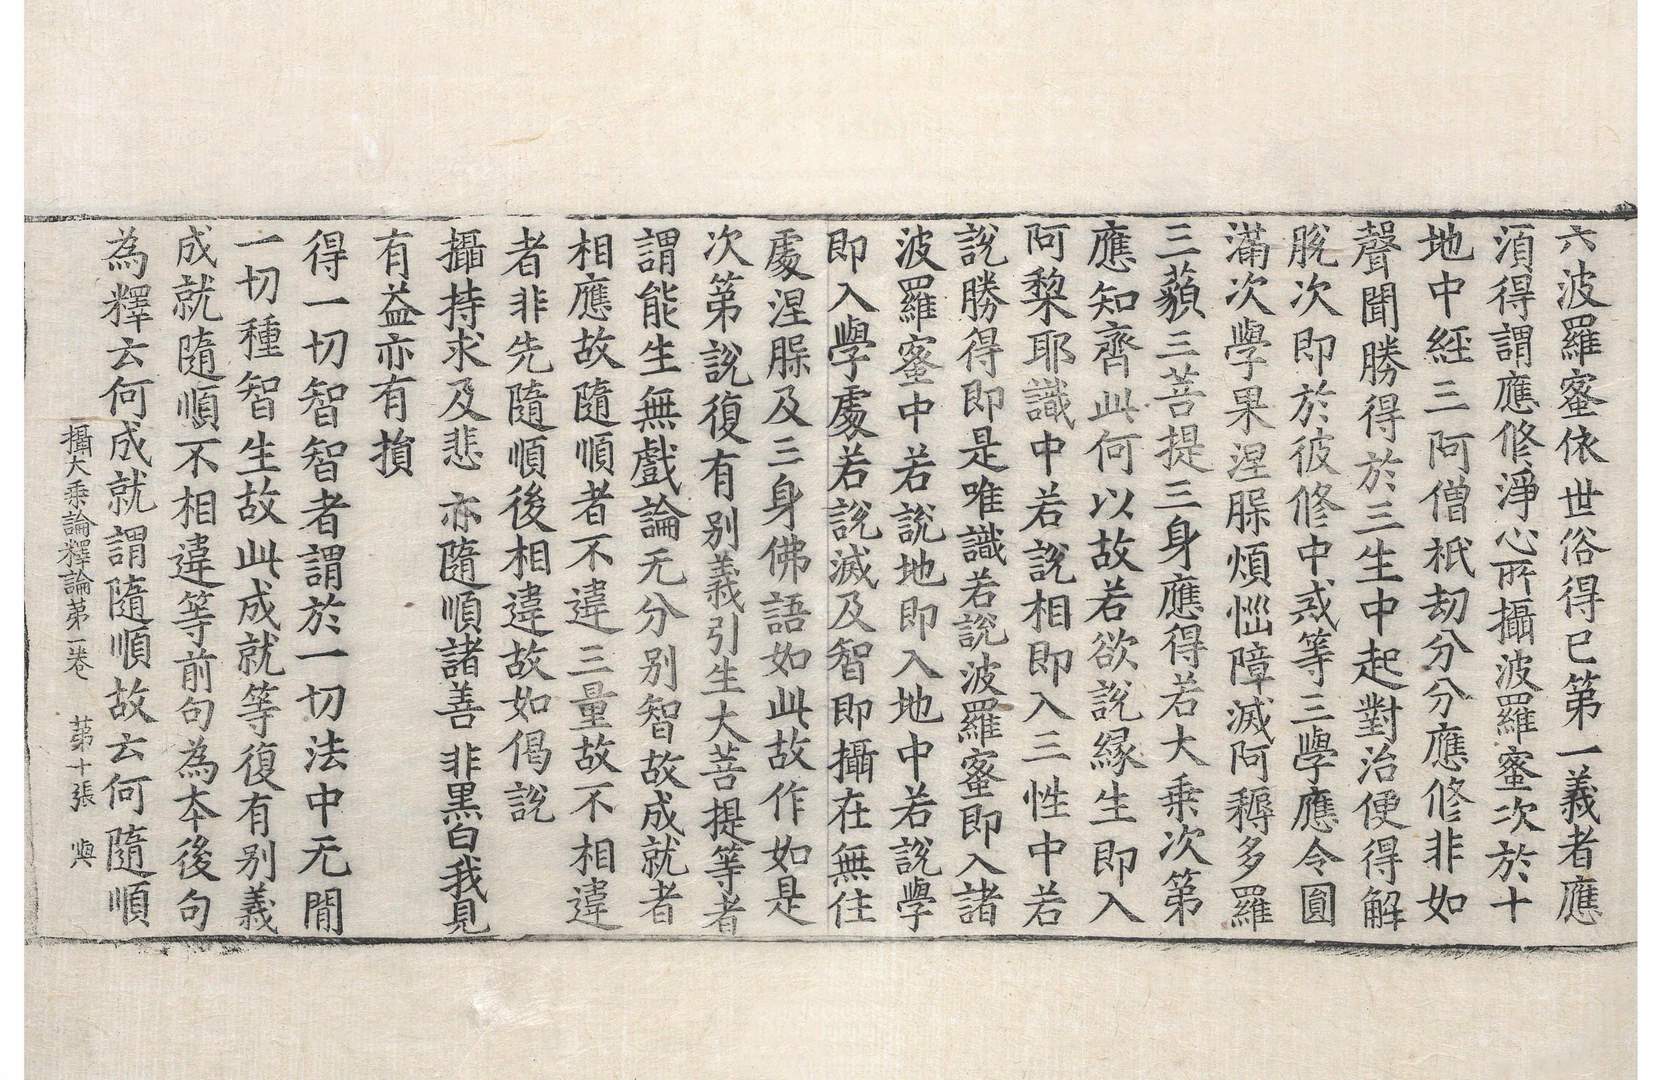 六波羅蜜依世俗得已第一義者應
湏得謂應修淨心所攝波羅蜜次於十
地中經三阿僧祇劫分分應修非如
聲聞勝得於三生中起對治便得解
脫次即於彼修中戒等三學應令圓
滿次學果涅槃煩惱障滅阿耨多羅
三藐三菩提三身應得若大乗次第
應知齊此何以故若欲說緣生即入
阿棃耶識中若說相即入三性中若
說勝得即是唯識若說波羅蜜即入諸
波羅蜜中若說地即入地中若說學
即入學處若說滅及智即攝在無住
處涅槃及三身佛語如此故作如是
次第說復有别義引生大菩提等者
謂能生無戲論无分别智故成就者
相應故隨順者不違三量故不相違
者非先隨順後相違故如偈說
攝持求及悲 亦隨順諸善 非黑白我見
有益亦有損
得一切智智者謂於一切法中无閒
一切種智智生故此成就等復有别義
成就隨順不相違等前句為本後句
為釋云何成就謂隨順故云何隨順
攝大乗論釋論第一卷 苐十張 㒜